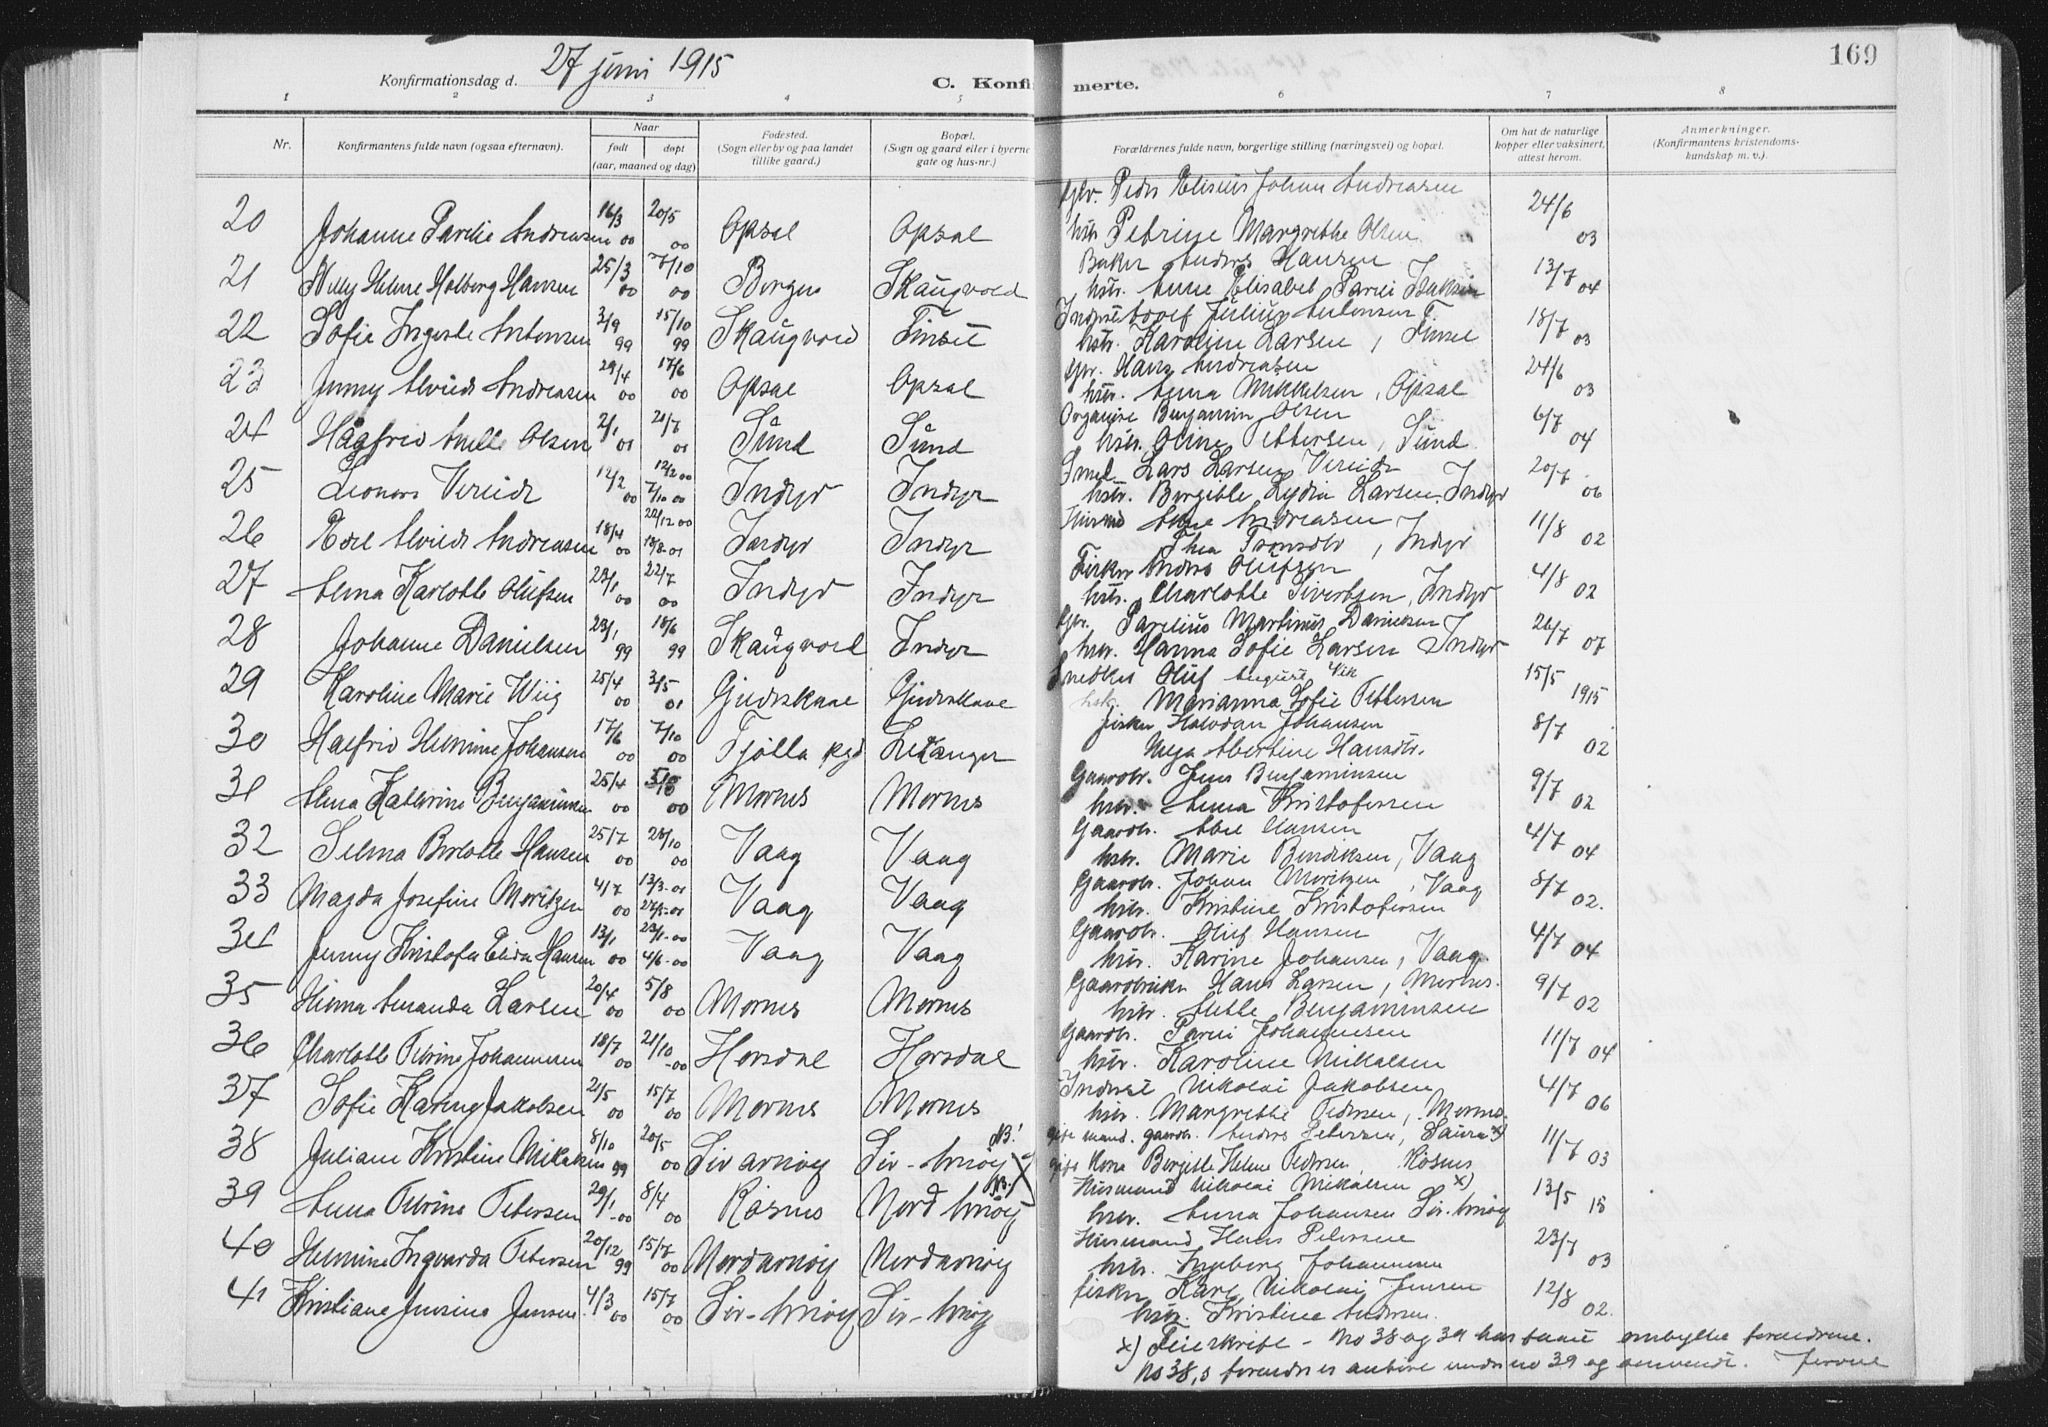 169
Konfirmationsdag d. 27 juni 1915
C. Konfir merte.
1 2 3 4 5 6 7 8
Nr.
Konfirmantens fulde navn (ogsaa efternavn).
Naar
født
døpt
(aar, maaned og dag)
Fødested.
(Sogn eller by og paa landet
tillike gaard.)
Bopæl.
(Sogn og gaard eller i byerne
gate og hus-nr.)
Forældrenes fulde navn, borgerlige stilling (næringsvei) og bopæl.
Om hat de naturlige
kopper eller vaksinert,
attest herom.
Anmerkninger.
(Konfirmantens kristendoms-
kundskap m. v.).
Gbr. Peder Elisius Johan Andreasen
20 Johanne Parelie Andreasen 16/3 00 20/5 00 Opsal Opsal hstr. Petrine Margrethe Olsen 24/6 03
Baker Anders Hansen
21 Helene Holberg Hansen 25/3 00 7/10 00 Bergen Skaugvold hstr. Anne Elisabet Isaksen 13/7 04
Inderst Julius Antonsen
22 Sofie Antonsen 3/9 99 15/10 99 Skaugvold Finset hstr. Karoline Larsen, 18/7 03
Gbr. Hans Andreasen
23 Jenny Alvide Andreasen 29/4 00 17/6 00 Opsal Opsal hstr. Anna Mikkelsen, Opsal 24/6 03
Organist Benjamin Olsen
24 Hagfrid Olsen 2/1 01 21/7 01 Sund Sund hstr. Oline Pettersen, Sund 6/7 04
Smed Lars Larsen Vereide
25 Leonora Vereide 12/2 00 12/2 00 7/10 00 Indyr Indyr hstr. Bergithe Lydia Larsen, Indyr 20/7 06
Andreasen
26 Alvide Andreasen 18/4 00 22/12 00 18/8 01 Indyr Indyr Thea, Indyr 11/8 02
Fisker Anders Olufsen
27 Alma Karlotte Olufsen 23/1 00 22/7 00 Indyr Indyr hstr. Charlotte Sivertsen, Indyr 4/8 02
Gbr. Parelius Martinus Danielsen
28 Johanne Danielsen 23/1 99 18/6 99 Skaugvold Indyr hstr. Hanna Sofie Larsen Indyr 26/7 07
Snedker Oluf August Vik
29 Karoline Marie Wiig 25/4 00 3/5 01 Gjeldskaae Gjeldskaae hstr. Marianna Sofie Pettersen 15/5 1915
fisker Halvdan Johansen
30 Halfrid Hermine Johansen 17/6 00 7/10 00 Tjøtta pgd Albertine Hansdtr. 8/7 02
Gaardbr. Jens Benjaminsen
31 Alma Katerine Benjaminsen 25/4 00 00 Mornes Mornes hstr. Anna Kristofersen 9/7 02
Gaardbr. Abel Hansen
32 Selma Berlotte Hansen 25/7 00 28/10 00 Vaag Vaag hstr. Marie Bendiksen, Vaag 4/7 04
Gaardbr. Johan Moritzen, Vaag
33 Magda Josefine Moritzen 4/7 00 13/3-01 27/5-01 Vaag Vaag hstr. Kristine Kristofersen 8/7 02.
Gaardbr. Oluf Hansen
34 Jenny Kristofa Elida Hansen 13/1 00 23/1-00 4/6-00 Vaag Vaag hstr. Karine Johansen, Vaag 4/7 04
Gaardbruker Hans Larsen, Mornes.
35 Hilma Amanda Larsen 20/4 00 5/8 00 Mornes Mornes hstr. Benjaminsen 9/7 02
Gaardbr. Johannesen
36 Charlotte Petrine Johannesen 18/7 00 21/10-00 Horsdal Horsdal hstr. Karoline Mikalsen 11/7 04
Inderst Nikolai Jakobsen
37 Sofie Karine Jakobsen 21/5 00 15/7 00 Mornes Mornes hstr. Margrethe Pedersen, Mornes. 4/7 06
NB!
gift mand. gaardbr. Anders Petersen, x)
38 Juliane Kristine Mikalsen 8/10 99 20/5 00 Sør arnøy Sør-Arnøy gift kone Bergitte Helene Pedersen, Kosnes 11/7 03
NB!
Husmand Nikolai Mikalsen x)
39 Anna Petrine Petersen 29/1-00 8/4 00 Kosnes Nord Arnøy hstr. Anna Johansen Sør-Arnøy 13/5 15
Husmand Hans Petersen
40 Hermine Ingvarda Petersen 20/12 99 15/7 00 Nordarnøy Nordarnøy hstr. Ingeborg Johannesen 23/7 03
fisker Karl Nikolai Jensen
41 Kristiane Jensine Jensen 4/3 00 15/7 00 Sør-Arnøy Sør-Arnøy hstr. Kristine Andersen. 12/8 02.
x) Feilskrift - No 38 og 39 har ombyttet forældrene.
No 38,s forældre er anført under no 39 og omvendt.